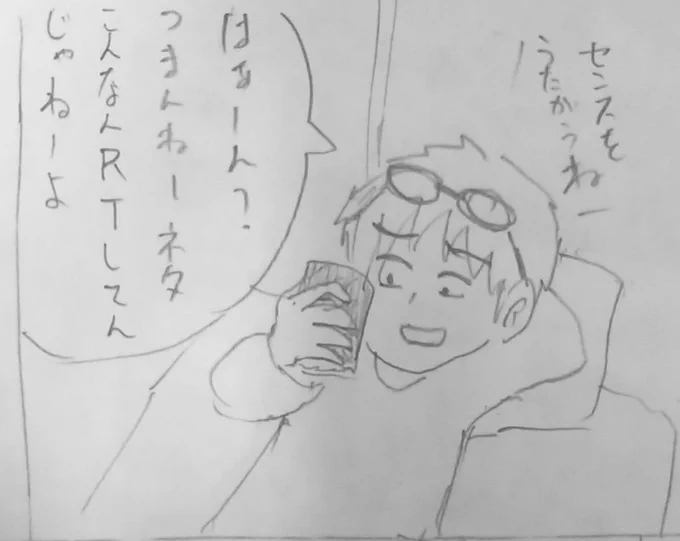 センスを
うたがうねー
はぁーん?
つまんねーネタ
こんなんRTしてん
じゃねーよ